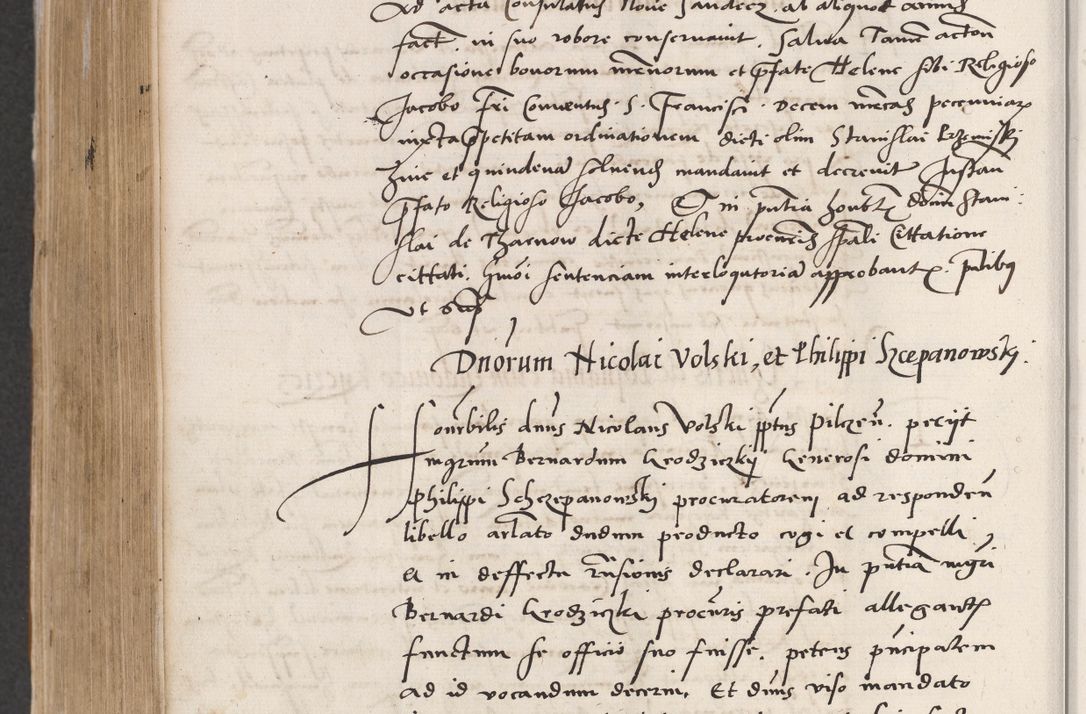 Ad acta Consulatus Nove Sandecz ab aliquot annis
fact. in suo robore conservavit. Salva Tame action
occasione bonorum memorum et pfate Helene sibi Religioso
Jacobo fri Conventus S. Francisci. Decem mrcas pecuniar
iuxta petitam ordinationem dicti olim Stanislai
hine et quindena solvend mandavit et decrevit Instan
pfato Religioso Jacobo, in pntia honbl dni Stani
slai de Tharnow dicte Helene procuris spali Cittatione
cittati. hmoi sententiam interloqutoria approbant. pntibus
Ut sup
Dnorum Nicolai Volski, et Philippi Szcepanowskj.
Honrbilis dnus Nicolaus Volski pptus Pilczen. petijt
mgrum Bernardum Grodziczkij Generosi domini
Philippi Schczepanowskj procuratorem ad responden
libello arlato dudum producto cogi et compelli,
et in deffectu rnsionis declarari. In pntia mgri
Bernardi Grodziczki procuris prefati allegants
functum se officio suo fuisse. petens principalem
ad id vocandum decerni, Et dnus viso mandato